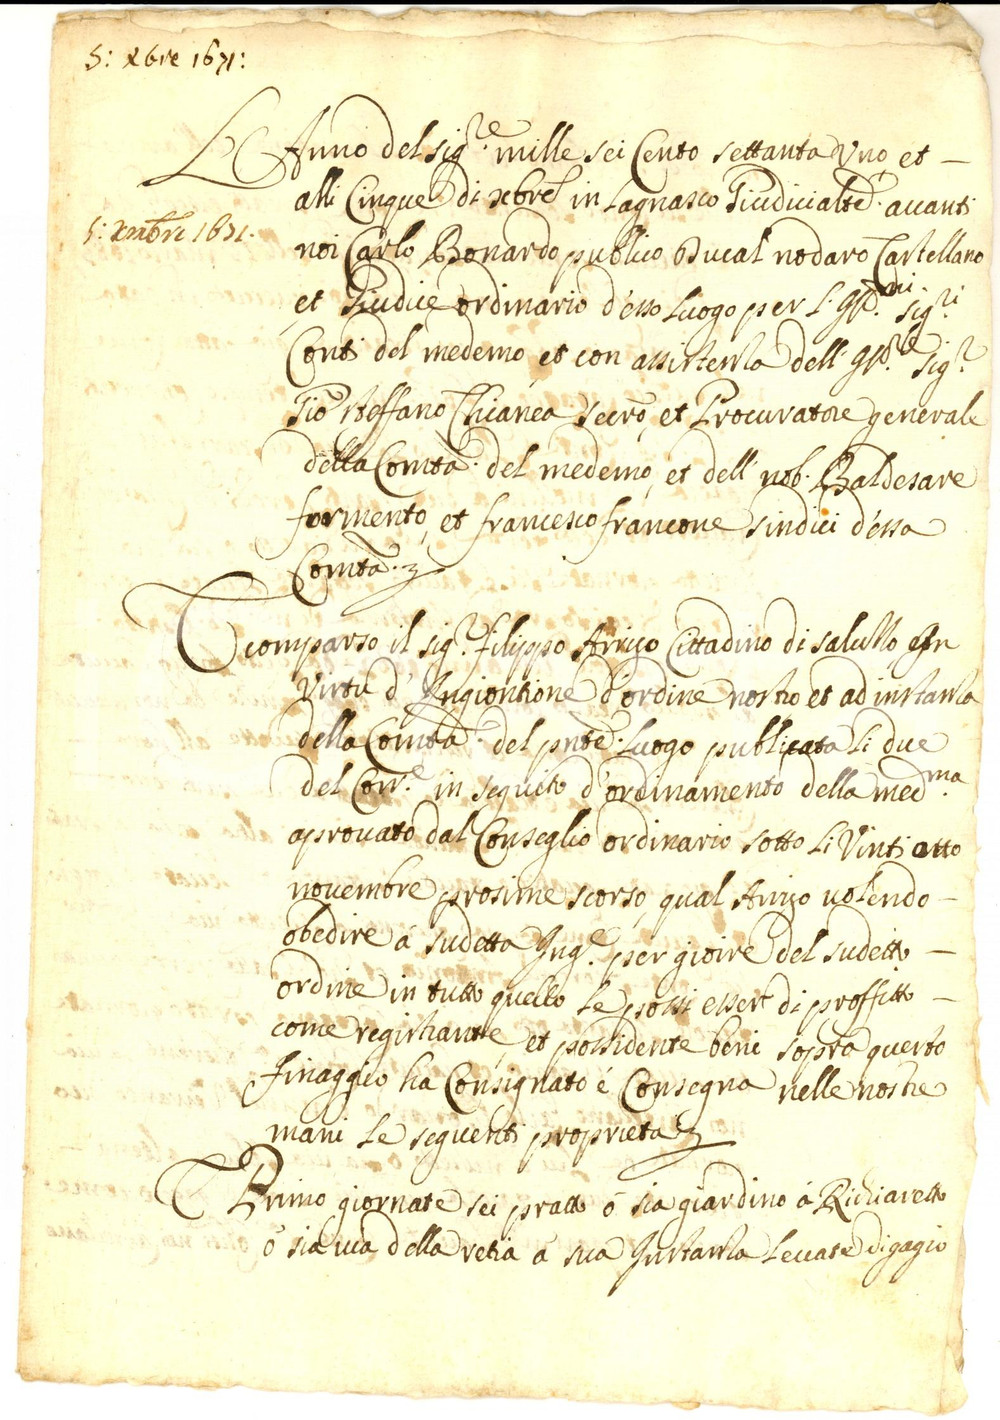 5: xbre 1671:
L'Anno del sig.re mille sei Cento settanta Uno et —
alli Cinque di xbre in Lagnasco Giudicialte. auanti
5: Xmbre 1671.
noi Carlo Bonardo publico Ducal nodaro Castellano
et Giudice ordinario d'esso Luogo per l: Ill.mi sig.ri
Conti del medemo et con assistenza dell' sig.r
Gio Steffano Chianea secro, et Procuratore generale
della Comta. del medemo, et dell' nob. Baldesare
formento, et francesco francone sindici d'essa
Comta.
comparso il sig.r filippo Arrigo Cittadino di saluzzo In
Virtu d' Ingiontione d'ordine nostro et ad instanza
della Comta. del pnte. Luogo publicata li due
del Corr.e in seguito d'ordinamento della med.ma
aprouato dal Conseglio ordinario sotto li Vinti otto
nouembre prosime scorso, qual Arrigo uolendo —
obedire á sudetta Ing.e per gioire del sudetto —
ordine in tutto quello le possi esser di proffitto —
come registrante, et possidente beni sopra questo
finaggio ha Consignato é Consegna nelle nostre
mani le seguenti proprieta
Primo giornate sei pratto ó sia giardino á Richiaretto
ó sia uia della retia á sua Instanza leuate di gagio